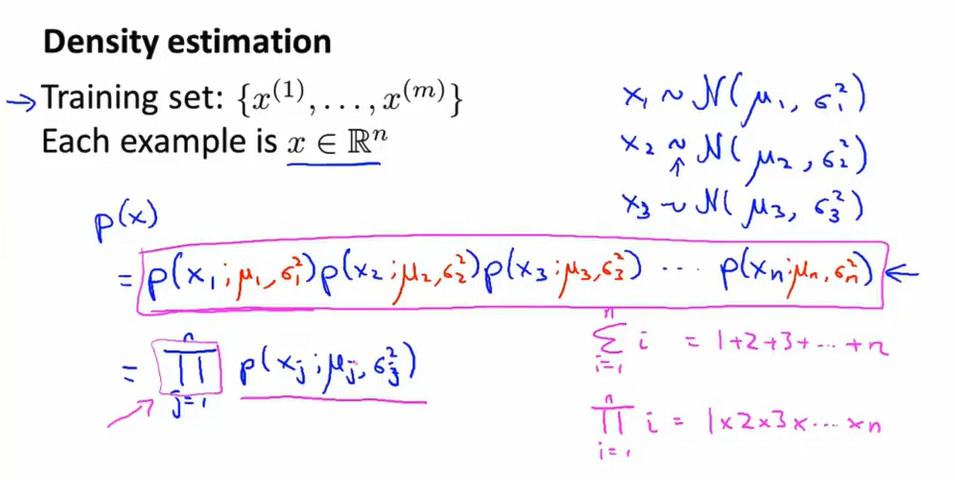 Density estimation
→ Training set: {x^(1), ..., x^(m)}
Each example is x ∈ ℝ^n
x₁ ~ N(μ₁, σ₁²)
x₂ ~ N(μ₂, σ₂²)
↑
x₃ ~ N(μ₃, σ₃²)
p(x)
= p(x₁; μ₁, σ₁²) p(x₂; μ₂, σ₂²) p(x₃; μ₃, σ₃²) ... p(xₙ; μₙ, σₙ²) ←
= ∏_{j=1}^{n} p(xⱼ; μⱼ, σⱼ²)
∑_{i=1}^{n} i = 1+2+3+...+n
∏_{i=1}^{n} i = 1×2×3×...×n